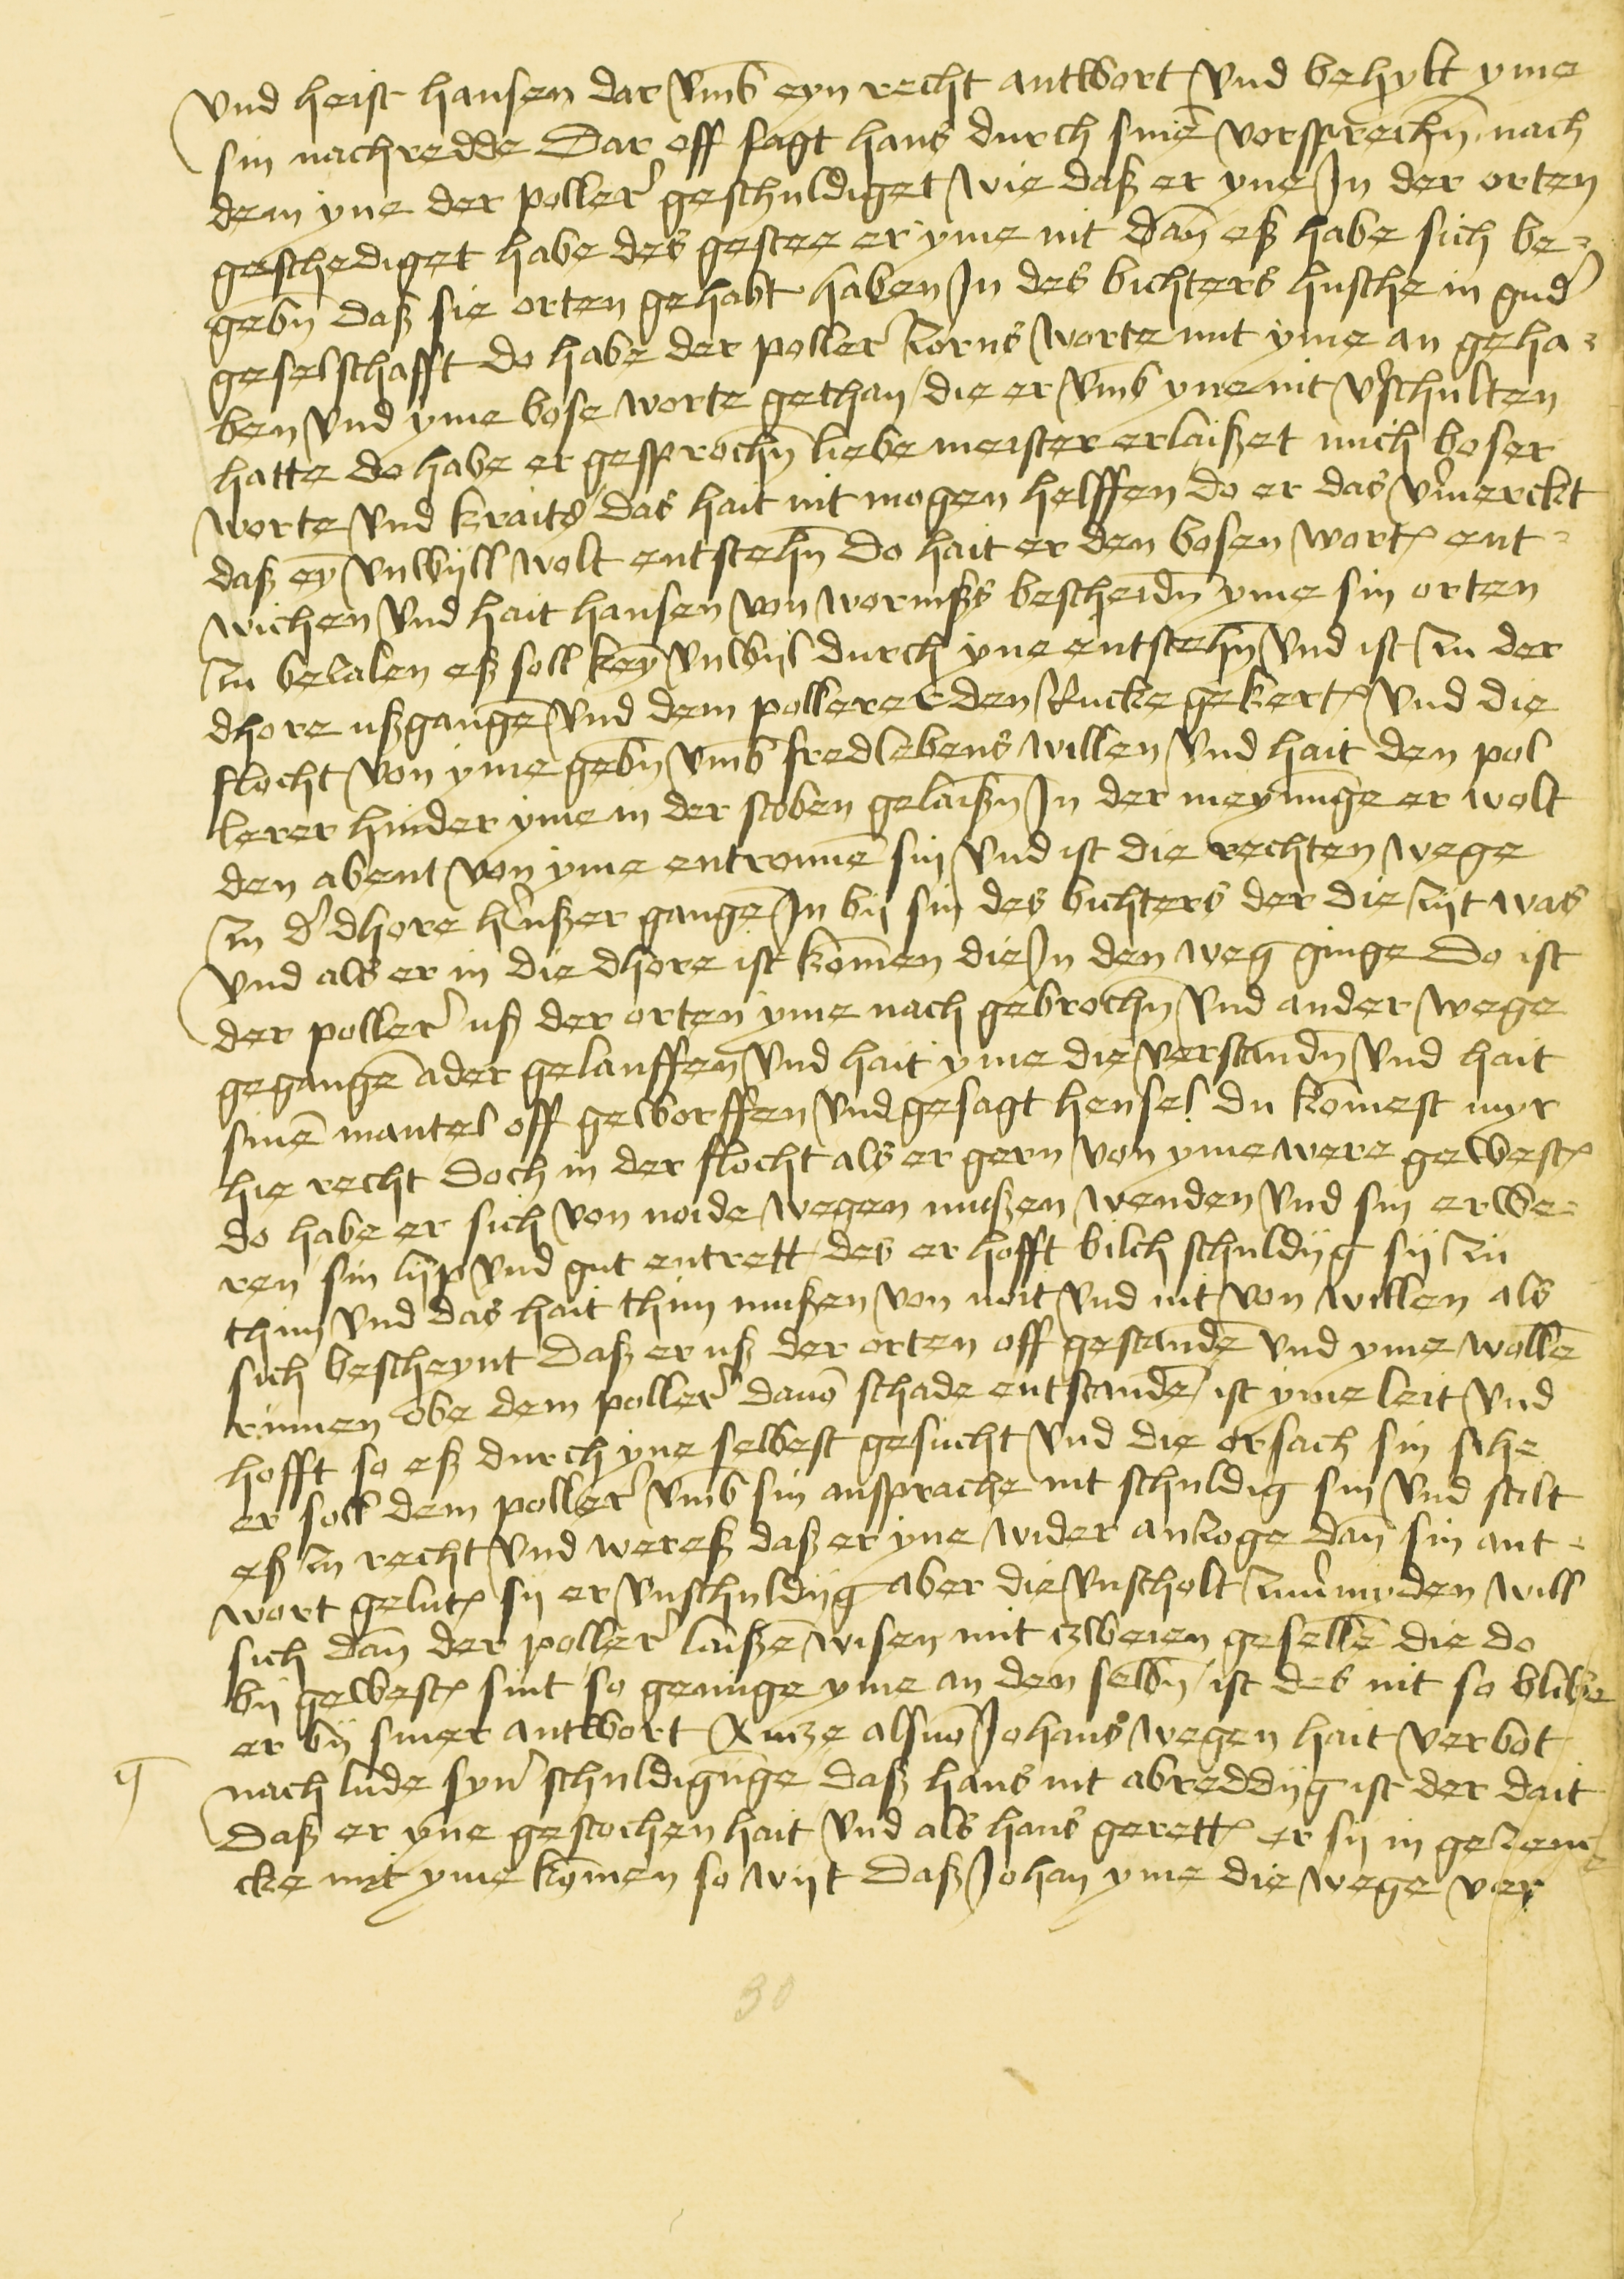 vnd heist hansen dar vmb eyn recht antwort vnd behylt yme
sin nachredde Dar off sagt hans durch sinē vorsprechn̄ nach
dem yne der poller' geschuldiget wie daß er yne Jn der orten
geschediget habe des gestee er yme nit dan̄ eß habe sich be-
gebn̄ daß sie orten gehabt haben Jn des bichters husche in gud'
geselschafft do habe der poller' zorns worte mit yme an geha-
ben vnd yme bose worte gethan / die er vmb yne nit v'schulten
hatte do habe er gesprochn̄ liebe meister erlaißet mich boser
worte vnd kraits / das hait nit mogen helffen do er das v'merckt
daß eȳ vnwyll wolt entstehn̄ Do hait er den bosen wort̄ ent-
wichen vnd hait hansen von wormßs bescheidn̄ yme sin orten
zu bezalen eß soll keȳ vnwyl durch yne entstehn̄ vnd ist zu der
dhore ußgangē vnd dem pollerer den Rucke gekert̄ vnd die
flocht von yme gebn̄ vmb fredlebens willen vnd hait den pol
lerer hinder yme in der stoben gelaißn̄ Jn der meynūge er wolt
den abent von yme entronnē sin vnd ist die rechten wege
zu d' dhore h'ußer gangē Jn by sin des bichters der die zyt was
vnd als er in die dhore ist kom̄en die Jn den weg ginge Do ist
der poller' uß der orten yme nach gebrochn̄ vnd ander wege
gegangē ader gelauffen vnd hait yme die verstandn̄ vnd hait
sinē mantel off geworffen vnd gesagt hensel du kom̄est myr
hie recht Doch in der flocht als er gern von yme were gewest̄
do habe er sich von noide wegen mußen wenden vnd sin erwe-
ren sin lyp vnd gut entrett des er hofft bilch schuldyg sy zu
thun vnd das hait thun mußen von noit vnd nit von willen als
sich bescheynt Daß er uß der orten off gestandē vnd yme wollē
rümen obe dem poller' dauō schade entstandē ist yme leit vnd
hofft so eß durch yne selbest gesucht vnd die orsach sin sihe
er soll dem poller' vmb sin ansprache nit schuldig sin vnd stelt
eß zu recht vnd wereß daß er yne wider anzoge dan̄ sin ant-
wort gelut̄ sy er vnschuldyg aber die vnscholt zuu'myden will
sich dan̄ der poller' laißē wisen mit zweien gesellē die do
by gewest̄ sint so genuge yme an den selbn̄ / ist des nit so blibe
er by siner antwort Kunze alsuō Johans wegen hait verbot
nach lude syn' schuldigūge daß hans nit abreddyg ist der dait
Daß er yne gestochen hait vnd als hans gerett̄ er sy in gezenc-
cke mit yme kom̄en so wyt daß Johan yme die wege ver
30